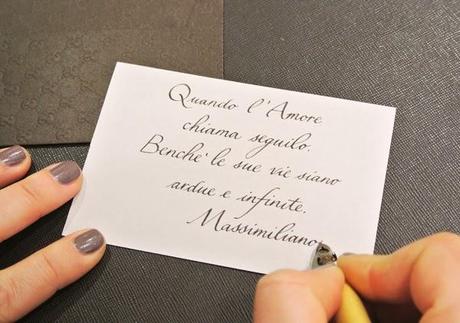 Quando l'Amore
chiama seguilo.
Benche' le sue vie siano
ardue e infinite.
Massimiliano